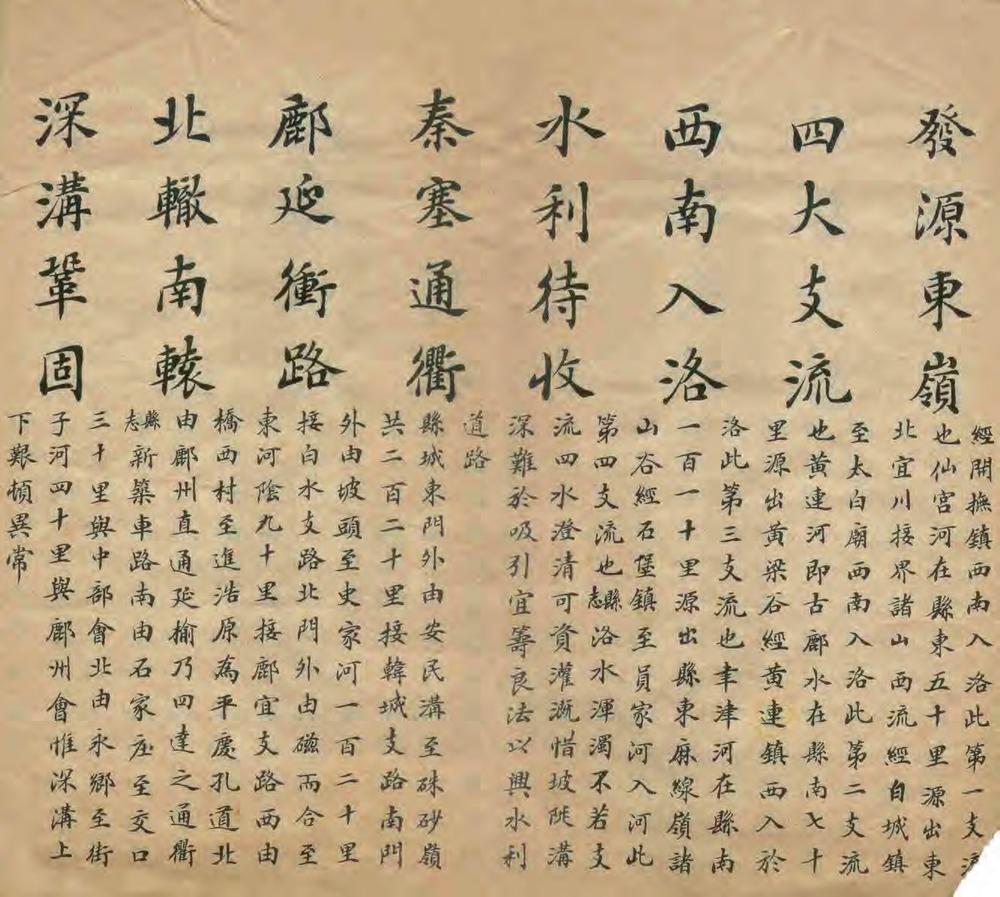 發源東嶺
四大支流
西南入洛
水利待收
秦塞通衢
鄜延衝路
北轍南轅
深溝鞏固
經開撫鎮西南入洛此第一支流
也仙宮河在縣東五十里源出東
北宜川接界諸山西流經自城鎮
至太白廟西南入洛此第二支流
也黃連河即古鄜水在縣南七十
里源出黃梁谷經黃連鎮西入於
洛此第三支流也丰津河在縣南
一百一十里源出縣東麻線嶺諸
山谷經石堡鎮至員家河入河此
第四支流也縣志洛水渾濁不若支
流四水澄清可資灌溉惜坡陡溝
深難於吸引宜籌良法以興水利
道路
縣城東門外由安民溝至硃砂嶺
共二百二十里接韓城支路南門
外由坡頭至史家河一百二十里
接白水支路北門外由磁而合至
東河陰九十里接鄜宜支路西由
橋西村至進浩原為平慶孔道北
由鄜州直通延榆乃四達之通衢
縣志新築車路南由石家庄至交口
三十里與中部會北由永鄉至街
子河四十里與鄜州會惟深溝上
下艱頓異常